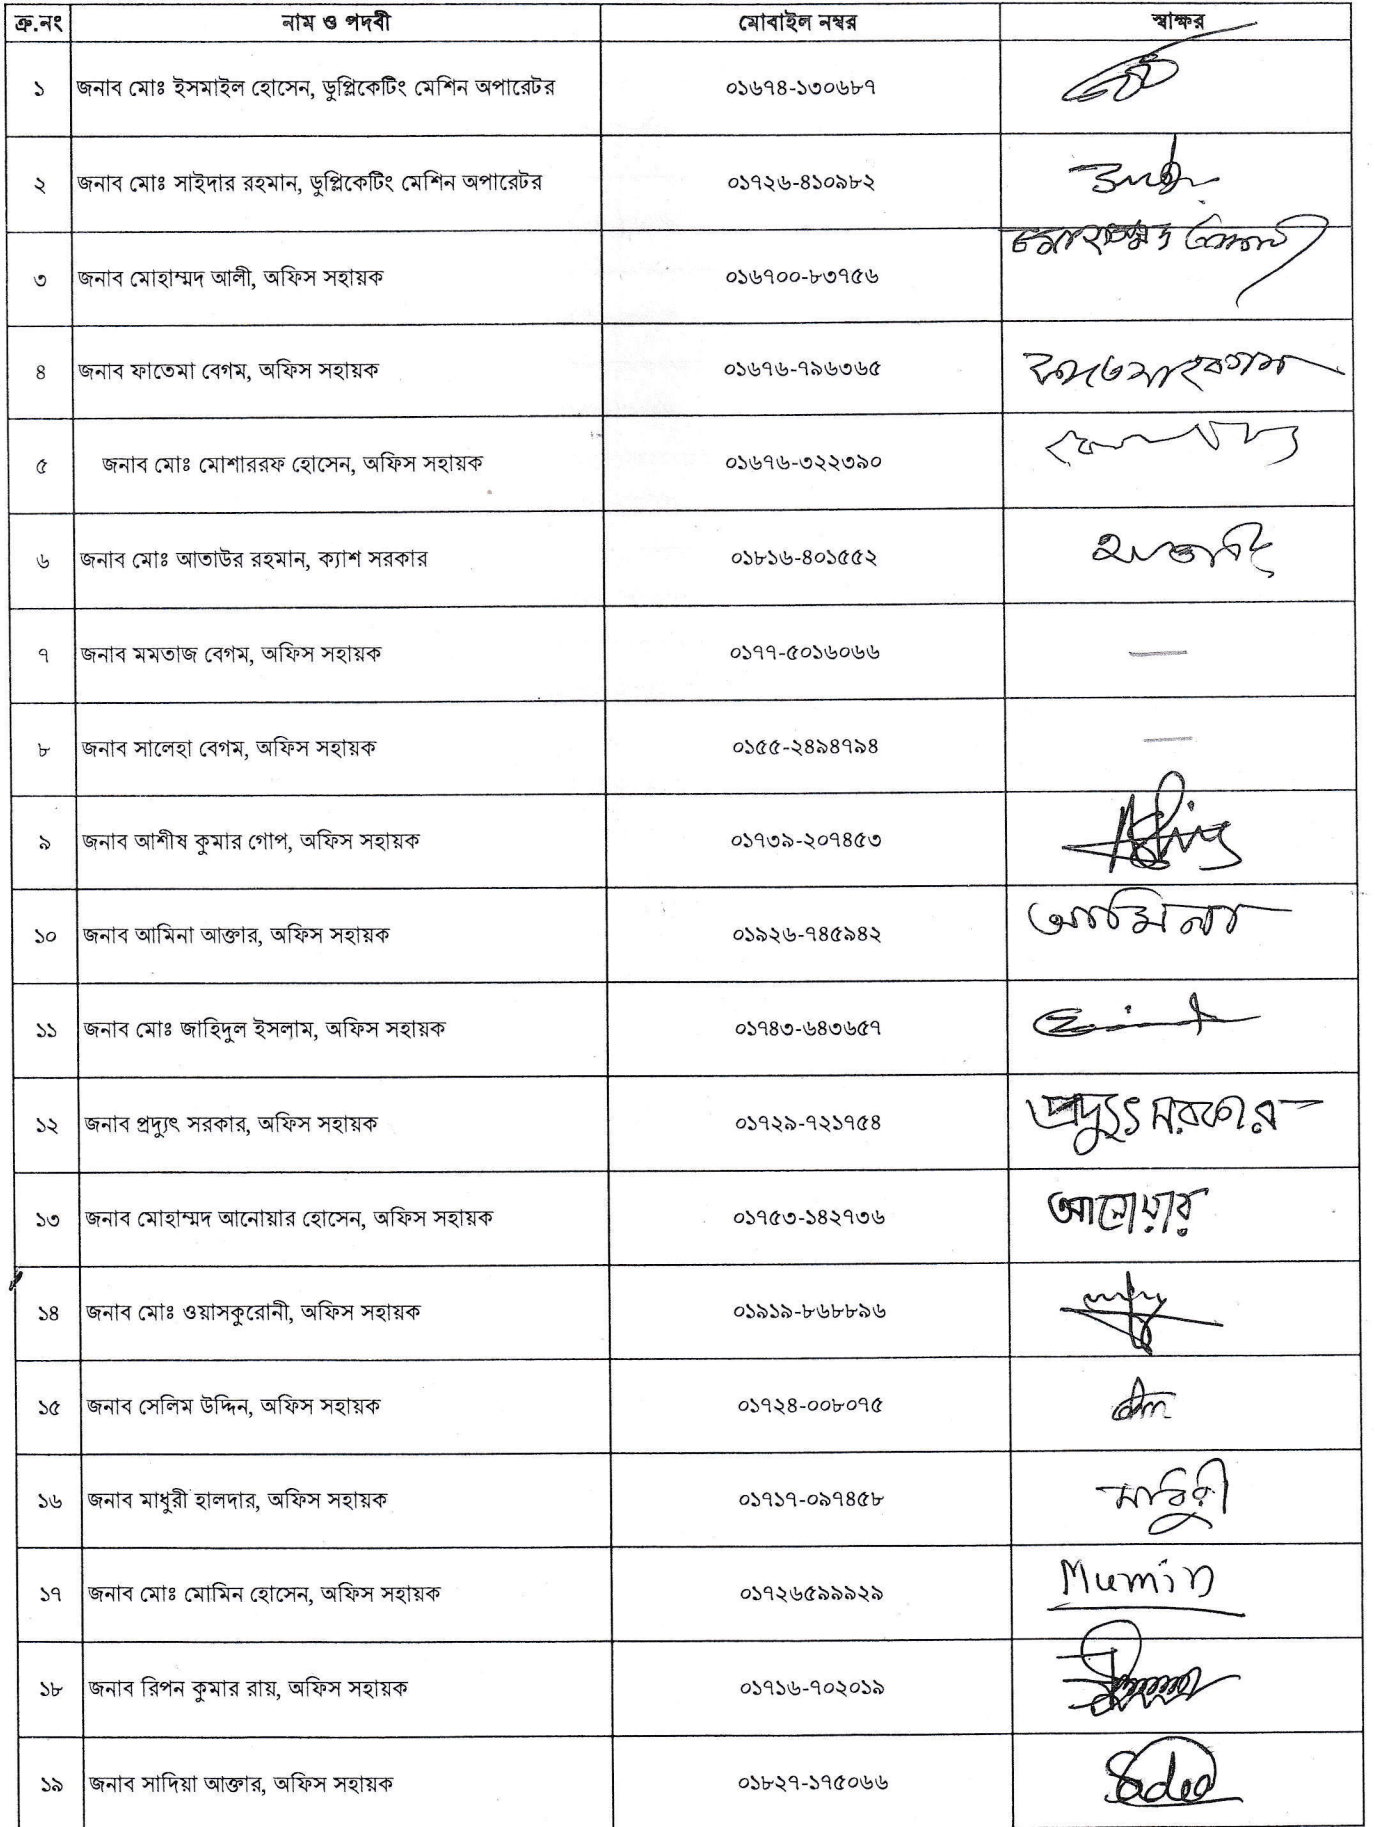 ক্র.নং নাম ও পদবী মোবাইল নম্বর স্বাক্ষর
১ জনাব মোঃ ইসমাইল হোসেন, ডুপ্লিকেটিং মেশিন অপারেটর ০১৬৭৪-১৩০৬৮৭
২ জনাব মোঃ সাইদার রহমান, ডুপ্লিকেটিং মেশিন অপারেটর ০১৭২৬-৪১০৯৮২
৩ জনাব মোহাম্মদ আলী, অফিস সহায়ক ০১৬৭০০-৮৩৭৫৬ মোহাম্মদ আলী
৪ জনাব ফাতেমা বেগম, অফিস সহায়ক ০১৬৭৬-৭৯৬৩৬৫ ফাতেমা বেগম
৫ জনাব মোঃ মোশাররফ হোসেন, অফিস সহায়ক ০১৬৭৬-৩২২৩৯০
৬ জনাব মোঃ আতাউর রহমান, ক্যাশ সরকার ০১৮১৬-৪০১৫৫২
৭ জনাব মমতাজ বেগম, অফিস সহায়ক ০১৭৭-৫০১৬০৬৬ —
৮ জনাব সালেহা বেগম, অফিস সহায়ক ০১৫৫-২৪৯৪৭৯৪ —
৯ জনাব আশীষ কুমার গোপ, অফিস সহায়ক ০১৭৩৯-২০৭৪৫৩
১০ জনাব আমিনা আক্তার, অফিস সহায়ক ০১৯২৬-৭৪৫৯৪২ আমিনা
১১ জনাব মোঃ জাহিদুল ইসলাম, অফিস সহায়ক ০১৭৪৩-৬৪৩৬৫৭
১২ জনাব প্রদ্যুৎ সরকার, অফিস সহায়ক ০১৭২৯-৭২১৭৫৪ প্রদ্যুৎ সরকার
১৩ জনাব মোহাম্মদ আনোয়ার হোসেন, অফিস সহায়ক ০১৭৫৩-১৪২৭৩৬ আনোয়ার
১৪ জনাব মোঃ ওয়াসকুরোনী, অফিস সহায়ক ০১৯১৯-৮৬৮৮৯৬
১৫ জনাব সেলিম উদ্দিন, অফিস সহায়ক ০১৭২৪-০০৮০৭৫
১৬ জনাব মাধুরী হালদার, অফিস সহায়ক ০১৭১৭-০৯৭৪৫৮ মাধুরী
১৭ জনাব মোঃ মোমিন হোসেন, অফিস সহায়ক ০১৭২৬৫৯৯৯২৯ Mumin
১৮ জনাব রিপন কুমার রায়, অফিস সহায়ক ০১৭১৬-৭০২০১৯
১৯ জনাব সাদিয়া আক্তার, অফিস সহায়ক ০১৮২৭-১৭৫০৬৬